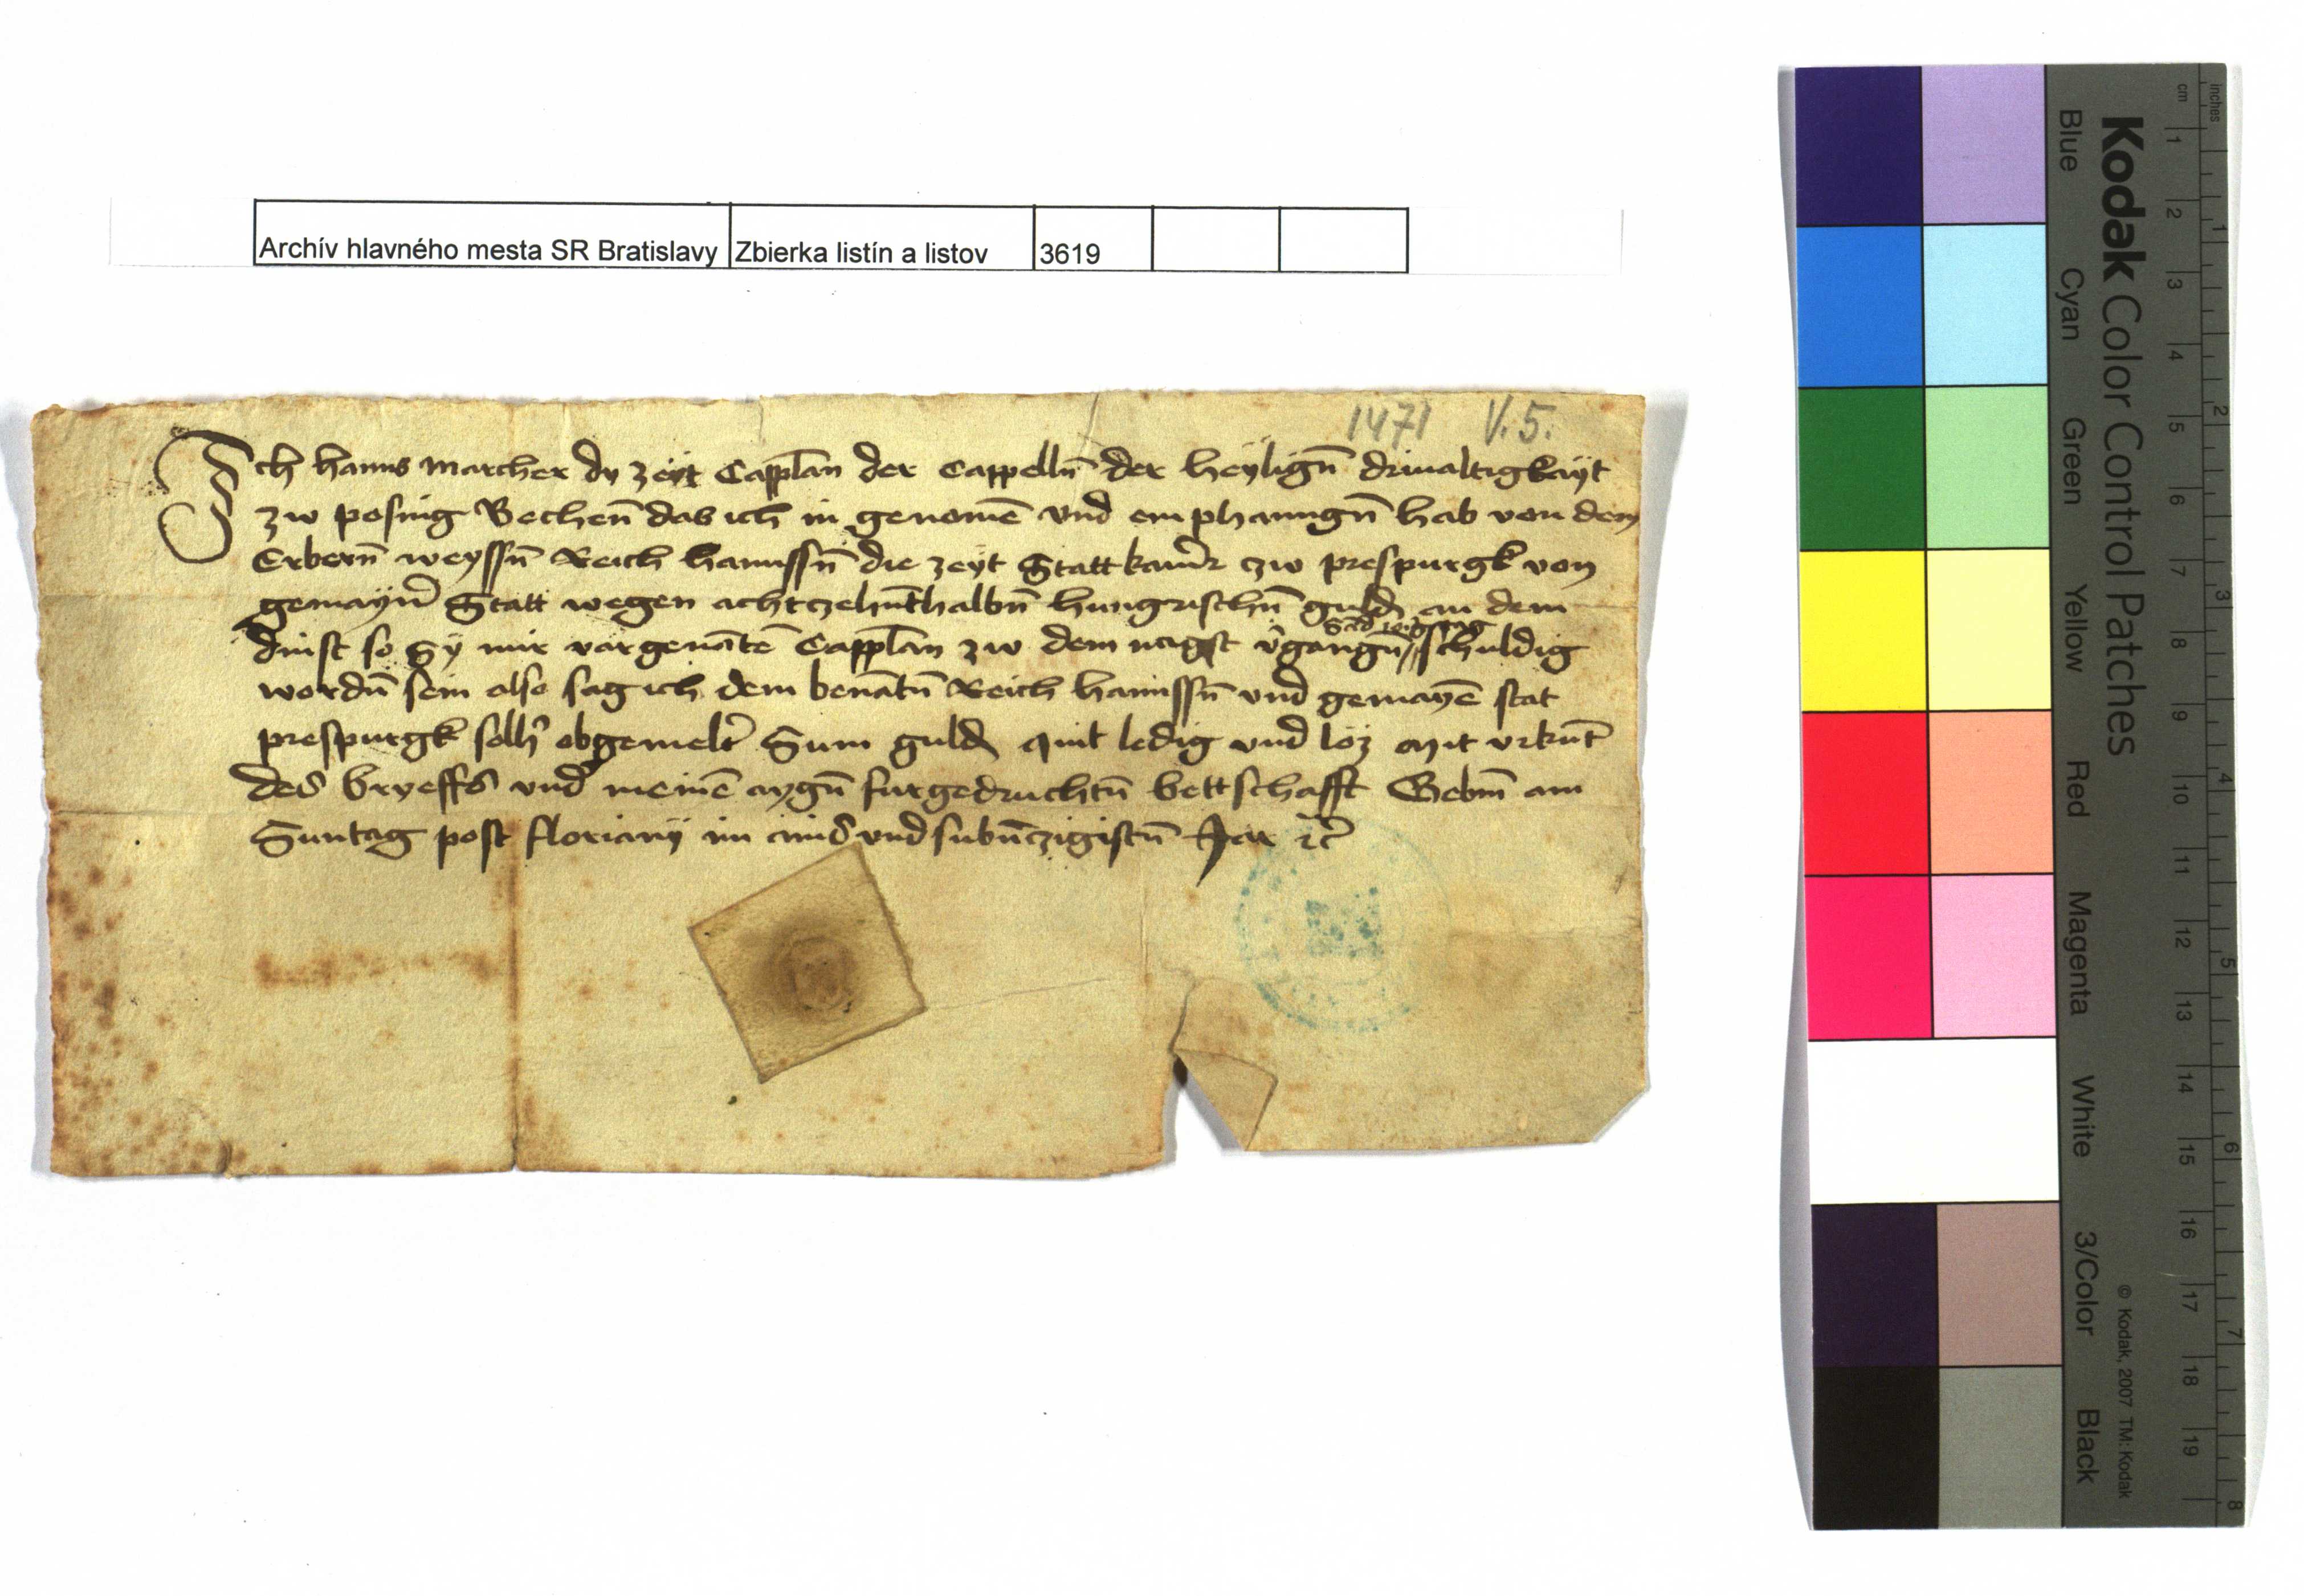 Archív hlavného mesta SR Bratislavy Zbierka listín a listov 3619
1471 V. 5.
Ich hanns marcher dy zeyt Capplan der Cappelln̄ der heylign̄ driualtigkayt
zw posing Bechen̄ das ich in genomē vnd emphanngn̄ hab von dem
Erbern̄ weyssn̄ Reich hannssn̄ die zeyt Stattkamr̄ czw prespurgk von
gemayn̄ Statt wegen achtczehn̄thalbn̄ hungrischn̄ guld an dem
dinst so Sy mir vorgenātē Capplan zw dem nagst v̄gangn̄ schuldig
wordn̄ sein also sag ich dem benātn̄ Reich hannssn̄ vnd gemayē stat
prespurgk solh̄ obgemelt̄ Sum guld quit ledig vnd loz mit vrkūt
des bryeffs vnd meinē aygn̄ furgedruchtn̄ bettschafft Gebm̄ am
Suntag post floriany im ainsvndsubn̄czigistn̄ Jar etc̄
Kodak Color Control Patches
Blue Cyan Green Yellow Red Magenta White 3/Color Black
inches 1 2 3 4 5 6 7 8
cm 1 2 3 4 5 6 7 8 9 10 11 12 13 14 15 16 17 18 19
© Kodak, 2007 TM: Kodak